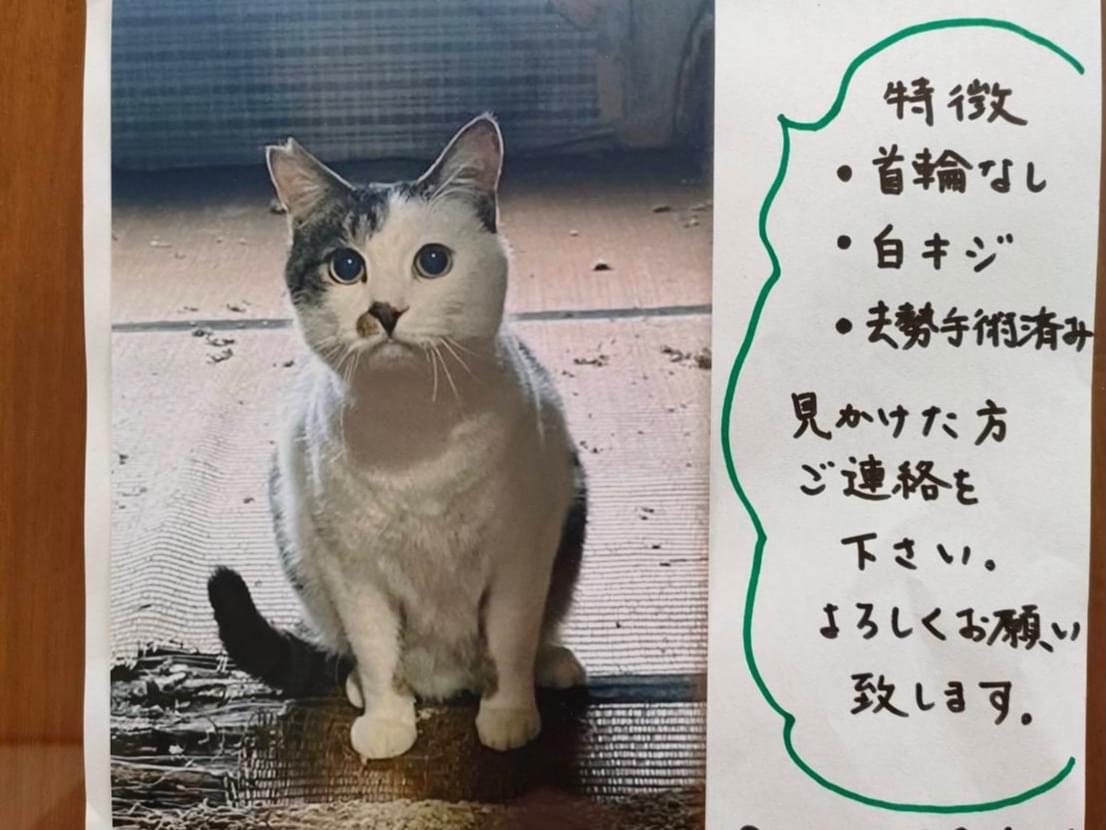 特徴
・首輪なし
・白キジ
・去勢手術済み
見かけた方
ご連絡を
下さい。
よろしくお願い
致します。